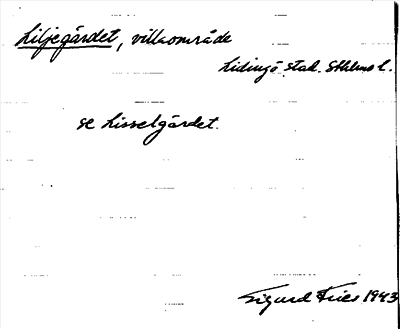 Liljegärdet, villaområde
Lidingö stad. Sthlms l.
se Lisselgärdet.
Sigurd Fries 1943